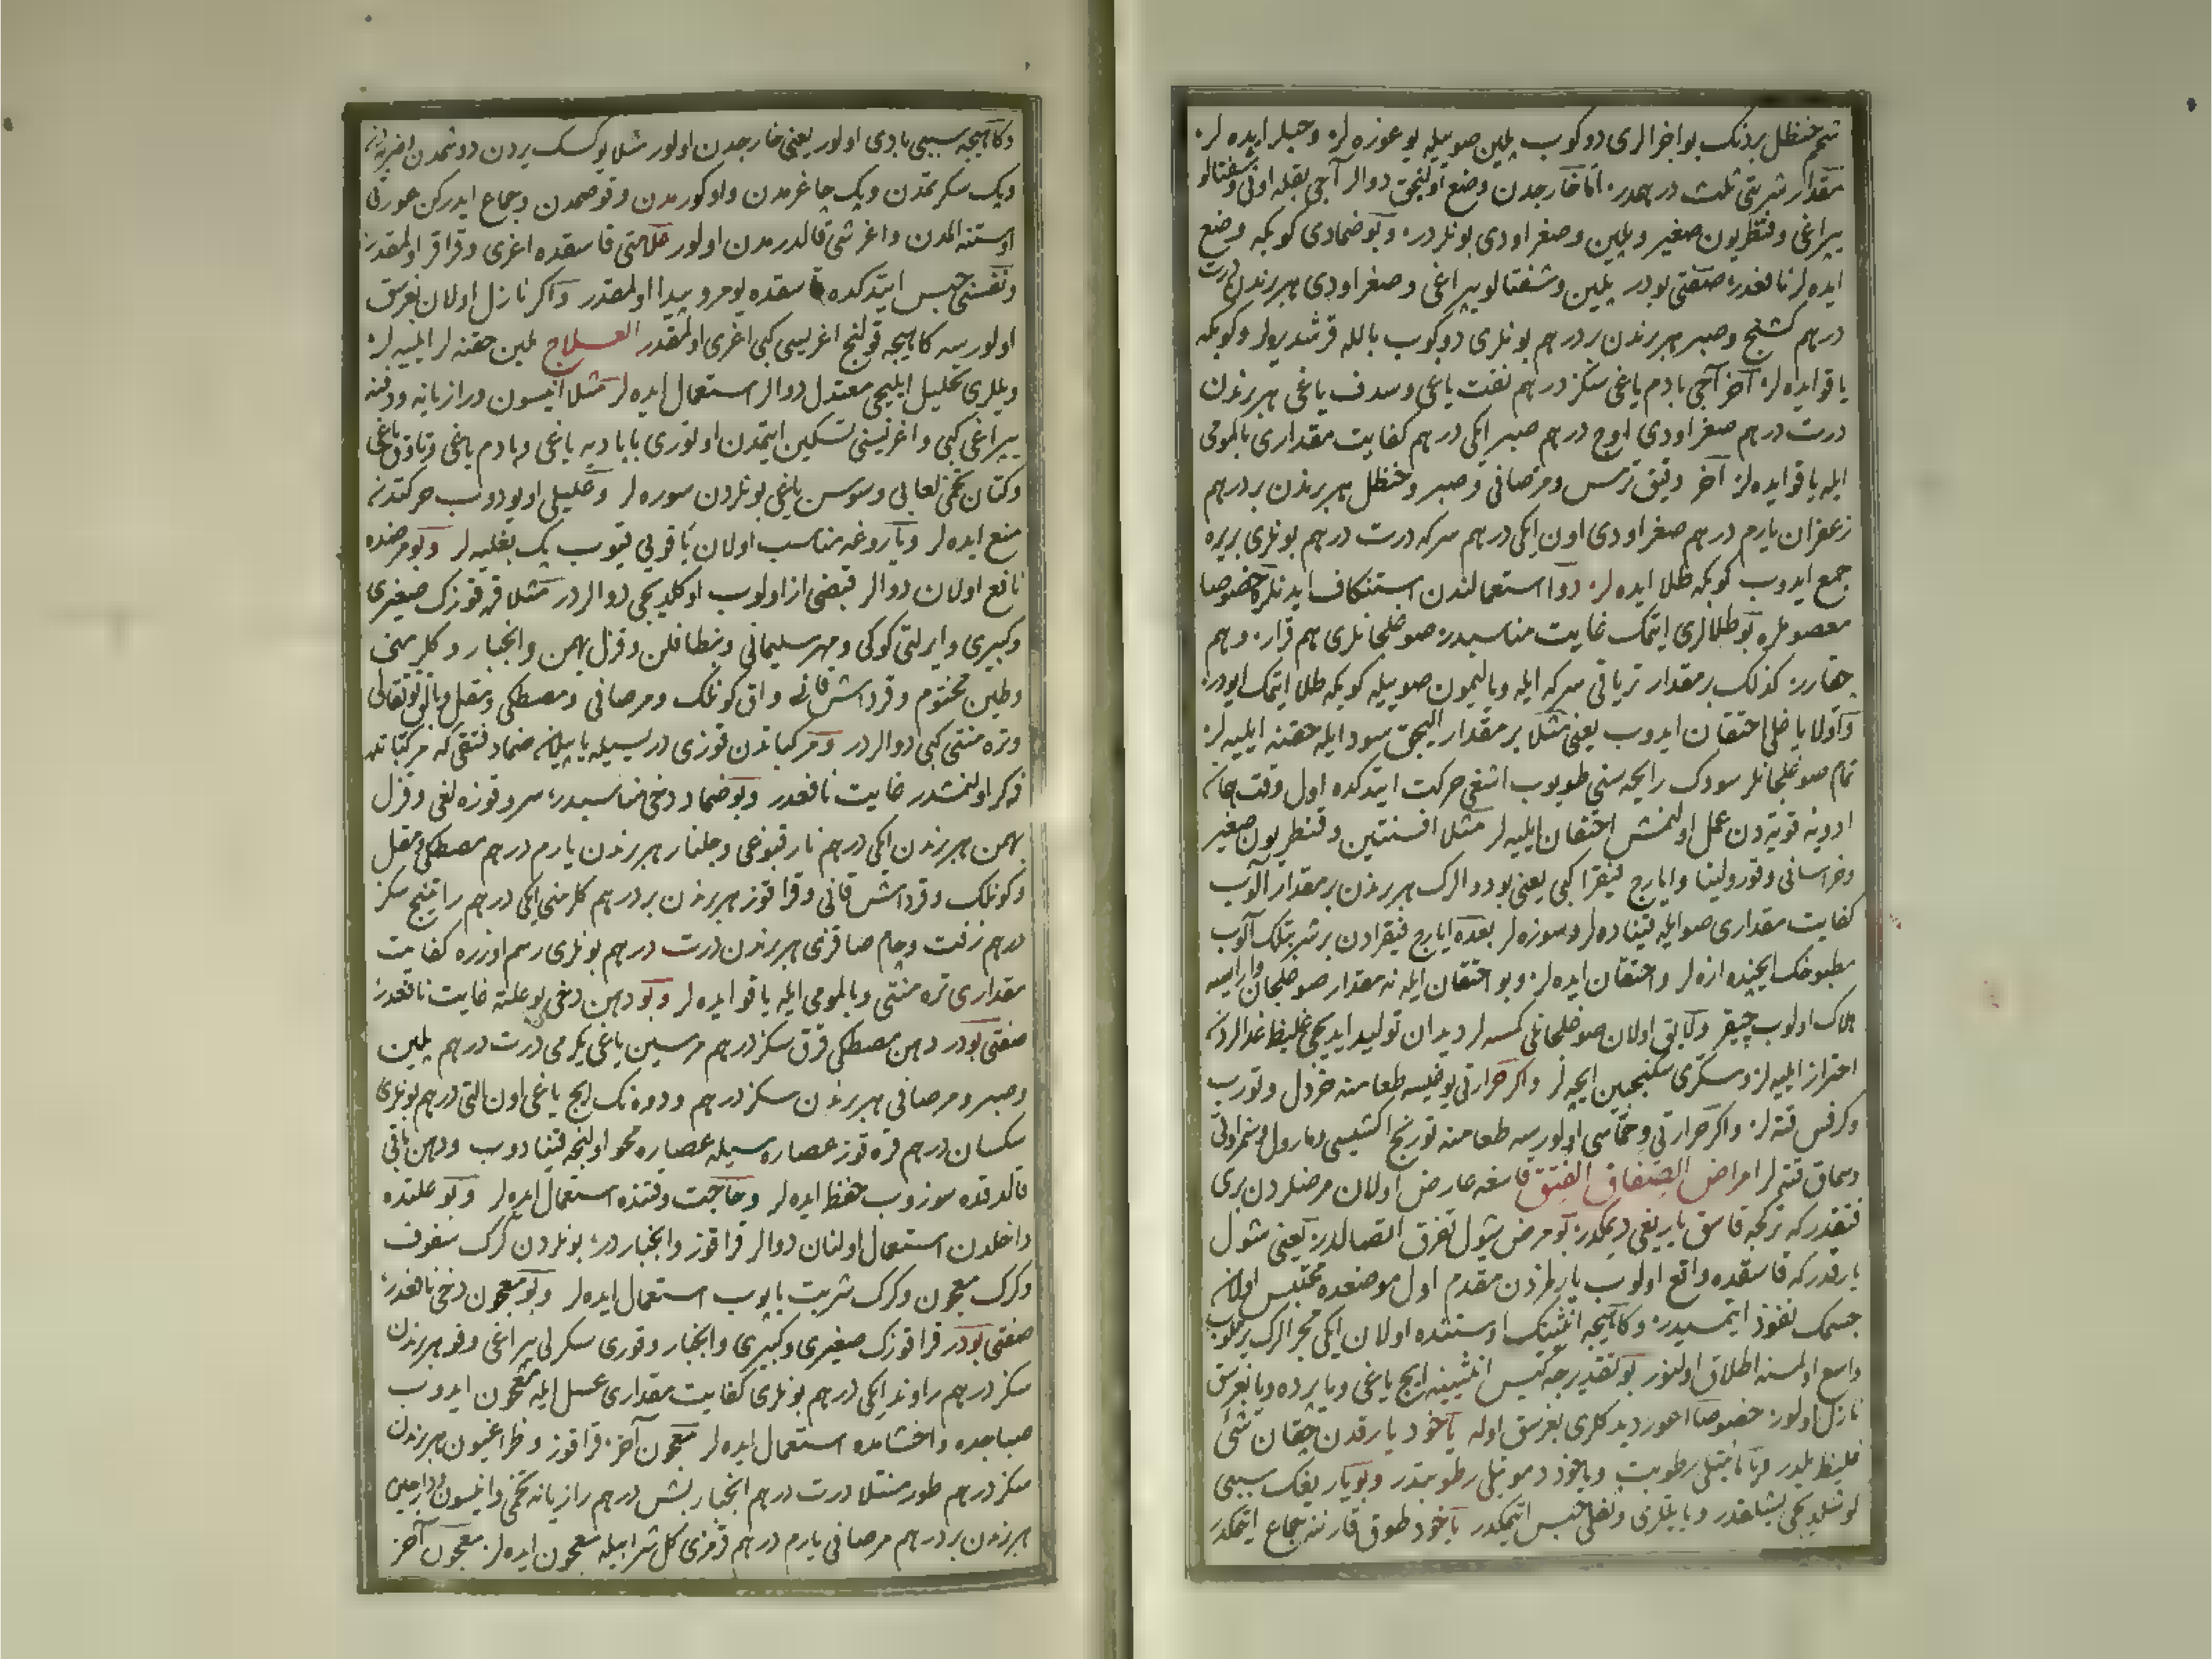 شحم حنظل بردنك بو اجزالری دوكوب يلين صوييله يوغوره لر و حبلر ايده لر
مقدار شربتی ثلث درهمدر اما خارجدن وضع اولنجق دوالر آجی بقله اونی و شفتالو
يپراغی و قنطريون صغير و يلين و صغر اودی بونلردر و بو ضمادی كوبكه وضع
ايده لر نافعدر صفتی بودر يلين و شفتالو يپراغی و صغر اودی هر برندن درت
درهم كشنج و صبر هر برندن بر درهم بونلری دوكوب بالله قرشدیرلر و كوبكه
ياقو ايده لر آخر آجی بادم ياغی سكز درهم نفت ياغی و سدف ياغی هر برندن
درت درهم صغر اودی اوچ درهم صبر ايكی درهم كفايت مقداری بالمومی
ايله ياقو ايده لر آخر دقيق ترمس و مرصافی و صبر و حنظل هر برندن بر درهم
زعفران يارم درهم صغر اودی اون ايكی درهم سركه درت درهم بونلری بريره
جمع ايدوب كوبكه طلا ايده لر دوا استعمالندن استنكاف ايدنلره خصوصا
معصوملره بو طلالری ايتمك غايت مناسبدر صوغلجانلری هم قرار و هم
چقارر كذلك بر مقدار ترياقی سركه ايله ويا ليمون صوييله كوبكه طلا ايتمك ايودر
و اولا ياخلی احتقان ايدوب يعنی مثلا بر مقدار اليجق سود ايله حقنه ايليه لر
تمام صوغلجانلر سودك رايحه سنی طويوب اشغی حركت ايتدكده اول وقت
ادويه قويه دن عمل اولنمش احتقان ايليه لر مثلا افسنتين و قنطريون صغير
و خراسانی و قورولينا و ايارج فيقرا كبی يعنی بو دوالرك هر برندن بر مقدار آلوب
كفايت مقداری صو ايله قيناده لر و سوزه لر بعده ايارج فيقرادن بر شربتلك آلوب
مطبوخك ايچنده ازه لر و احتقان ايده لر و بو احتقان ايله نه مقدار صوغلجان وار ايسه
هلاك اولوب چيقر و كلی اولان صوغلجانلی كمسه لر ديدان توليد ايديجی غليظ غدالردن
احتراز ايليه لر و سكری سكنجبين ايچه لر و اكر حرارتی يوغيسه طعامنه خردل و تورب
و كرفس قته لر و اكر حرارتی و حماسی اولورسه طعامنه تورنج اكشيسی و مارول و سمزاوتی
و سماق قته لر امراض الصفاق الفتق قاسغه عارض اولان مرضلردن بری
فتقدر كه تركجه قاسق ياريغی ديمكدر بو مرض شول تفرق اتصالدر يعنی شول
يارقدر كه قاسقده واقع اولوب يارلمزدن مقدم اول موضعده محتبس اولان
جسمك نفوذ ايتمسيدر و كاهيجه انثيينك اوستنده اولان ايكی مجرالرك
واسع اولمسنه اطلاق اولنور بو تقديرجه كيس انثيينه ايچ ياغی ويا پرده ويا بغرسق
نازل اولور خصوصا اعور ديدكلری بغرسق اوله ياخود يارقدن چيقان شی
غليظ يلدر ويا مائيتلی رطوبت وياخود دمويتلی رطوبتدر و بو ياريغك سببی
كوشلديجی يشلقدر ويا يللری و ثفلی حبس ايتمكدر ياخود طوق قارننه جماع ايتمكدر
و كاهيجه سببی بادی اولور يعنی خارجدن اولور مثلا يوكسك يردن دوشمدن
و پك سكرتمدن و پك چاغرمدن و اوكورمدن و قوصمدن و جماع ايدركن عورتی
اوستنه المدن و اغر شی قالدرمدن اولور علامتی قاسقده اغری و قراقر اولمقدر
و نفسنی حبس ايتدكده قاسقده يومرو پيدا اولمقدر و اكر نازل اولان بغرسق
اولورسه كاهيجه قولنج اغريسی كبی اغری اولمقدر العلاج يلين حقنه لر ايليه لر
و يللری تحليل ايليجی معتدل دوالر استعمال ايده لر مثلا انيسون و رازيانه و دفنه
يپراغی كبی و اغريسنی تسكين ايتمدن اوتوری بابادیه ياغی و بادم ياغی
و كتان تخمی لعابی و سوسن ياغی بونلردن سوره لر و عليلی اويودوب حركتدن
منع ايده لر و ياروغه مناسب اولان ياقويی قيوب پك بغليه لر و بو مرضده
نافع اولان دوالر قبضی از اولوب اوكلديجی دوالردر مثلا قره قوزك صغيری
و كبيری و ايرلتی كوكی و مهر سليمانی و بنطافلن و قزل بهمن و انجبار و كلرمنی
و طين مختوم و قرداش قانی و اق كونلك و مرصافی و مصطكی و مقل و بالق توتقالی
و تره منتی كبی دوالردر و مركباتدن قوزی دريسيله ياپيلان ضماد فتقی كه مركباتده
ذكر اولنمشدر غايت نافعدر و بو ضماد دخی مناسبدر سرو قوزه لغی و قزل
بهمن هر برندن ايكی درهم نار قبوغی و جلنار هر برندن يارم درهم مصطكی و مقل
و كونلك و قرداش قانی و قرا قوز هر برندن بر درهم كلرمنی ايكی درهم راتينج سكز
درهم زفت و چام صاقزی هر برندن درت درهم بونلری رسم اوزره كفايت
مقداری تره منتی و بالمومی ايله ياقو ايده لر و بو دهن دخی بو علته غايت نافعدر
صفتی بودر دهن مصطكی قرق سكز درهم مرسين ياغی يكرمی درت درهم يلين
و صبر و مرصافی هر برندن سكز درهم و دوه نك ايچ ياغی اون التی درهم بونلری
سكسان درهم قره قوز عصاره سيله عصاره محو اولنجه قينادوب و دهن باقی
قالدقده سوزوب حفظ ايده لر و حاجت وقتنده استعمال ايده لر و بو علتده
داخلدن استعمال اولنان دوالر قرا قوز و انجباردر بونلردن كرك سفوف
و كرك معجون و كرك شربت ياپوب استعمال ايده لر و بو معجون دخی نافعدر
صفتی بودر قرا قوزك صغيری و كبيری و انجبار و قوری سكرلی يپراغی و فو هر برندن
سكز درهم راوند ايكی درهم بونلری كفايت مقداری عسل ايله معجون ايدوب
صباحده و اخشامده استعمال ايده لر معجون آخر قرا قوز و طراغيون هر برندن
سكز درهم طورمنتلا درت درهم انجبار بش درهم رازيانه تخمی و انيسون و دارچينی
هر برندن بر درهم مرصافی يارم درهم قرمزی كل شرابيله معجون ايده لر معجون آخر